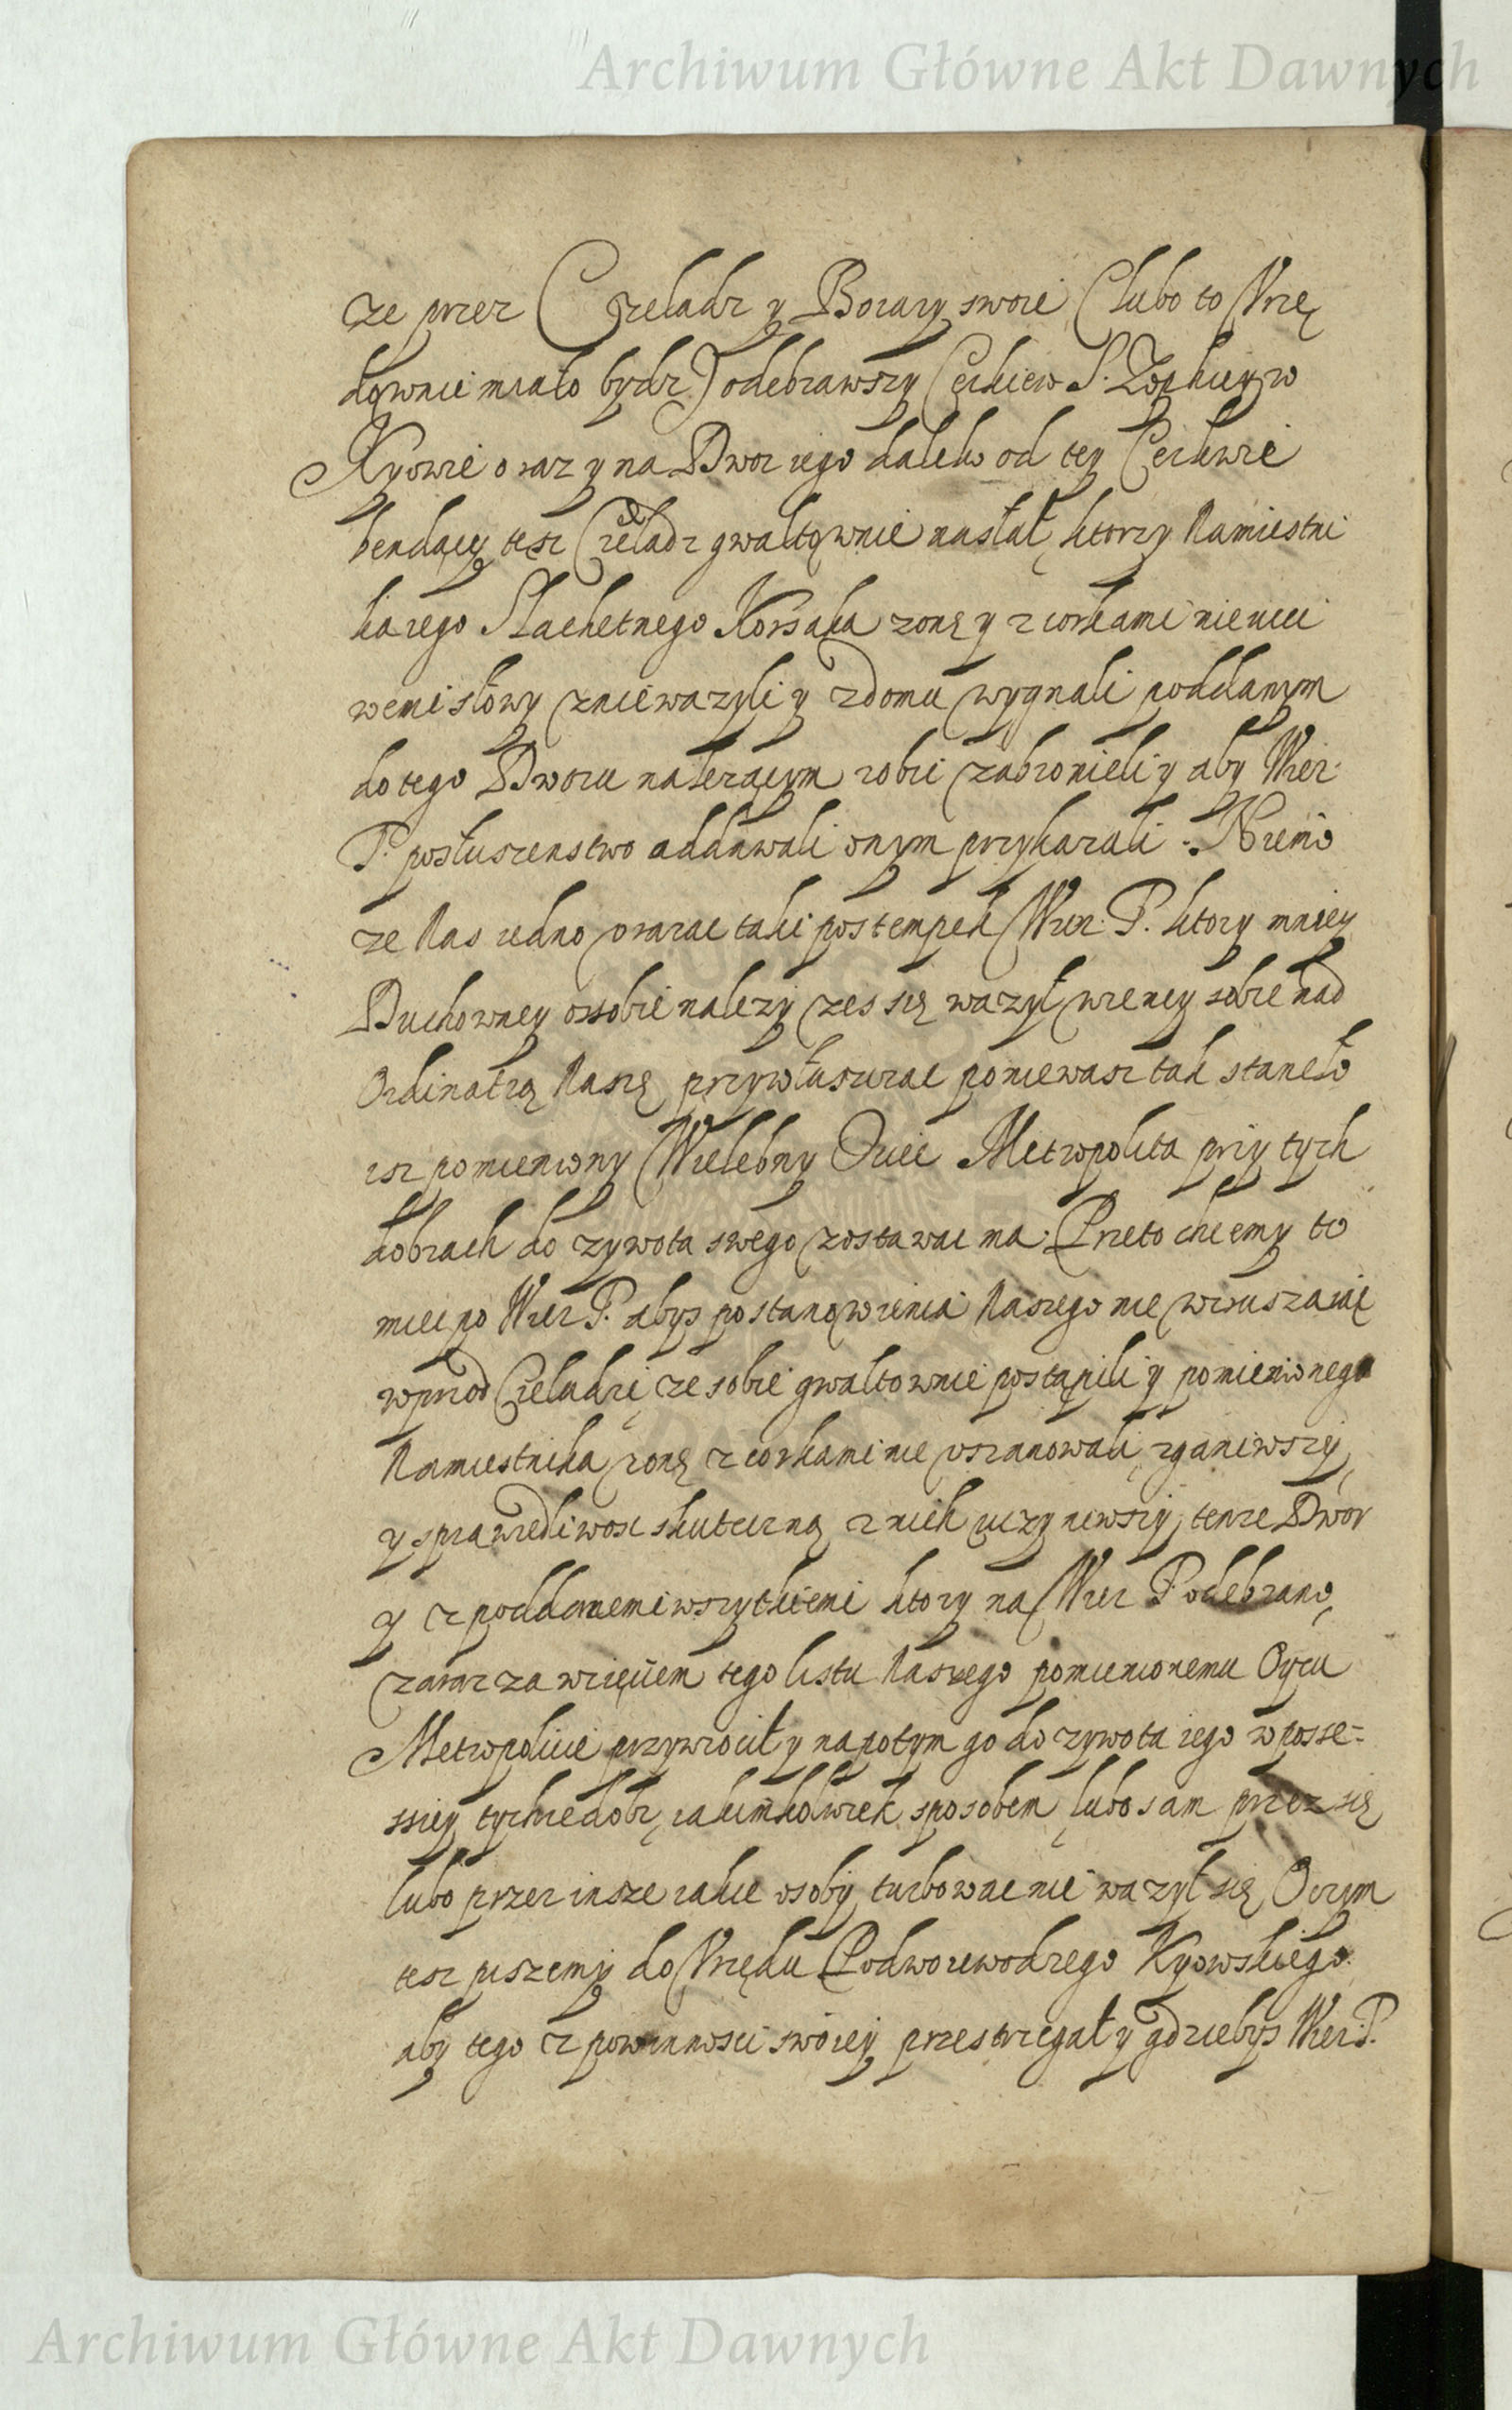 Archiwum Główne Akt Dawnych
ze przez Czeladz y Boiary swoie (lubo to Vrzę
downie miało bydz) odebrawszy Cerkiew S. Zophiey w
Kyowie oraz y na Dwor iego daleko od tey Cerkwie
bendący tesz Czeladz gwałtownie nasłał, ktorzy Namiestni
ka iego Slachetnego Korsaka zonę y z corkami nieucci
wemi słowy zniewazyli y z domu wygnali poddanym
do tego Dworu nalezącym robic zabronieli y aby Wier.
P. posłuszenstwo addawali onym przykazali. Niemo
ze Nas iedno vrazac taki postempek Wier. P. ktory mniey
Duchowney ossobie nalezy zes się wazył wiencey sobie nad
Ordinatią Naszę przywłuszczac poniewasz tak staneło
isz pomieniony Wielebny Ociec Metropolita przy tych
dobrach do zywota swego zostawac ma. Przeto chcemy to
miec po Wier P. abys postanowienia Naszego nie wzruszaiąc
wprzod Czeladzi ze sobie gwałtownie postąpili y pomienionego
Namiestnika zonę z corkami nie vszanowali, zganiwszy,
y sprawiedliwosc skuteczną z nich uczyniwszy, tenze Dwor
y z poddanemi wszytkiemi ktory na Wier P. odebrano,
zaraz za wzięciem tego listu Naszego pomienionemu Oycu
Metropolicie przywrocił y napotym go do zywota iego w posse-
ssiey tychze dobr, iakimkolwiek sposobem, lubo sam przez się
lubo przez insze iakie osoby turbowac nie wazył się, O czym
tesz piszemy do Vrzędu Podwoiewodzego Kyowskiego.
aby tego z powinnosci swoiey przestrzegał y gdziebys Wier. P.
Archiwum Główne Akt Dawnych